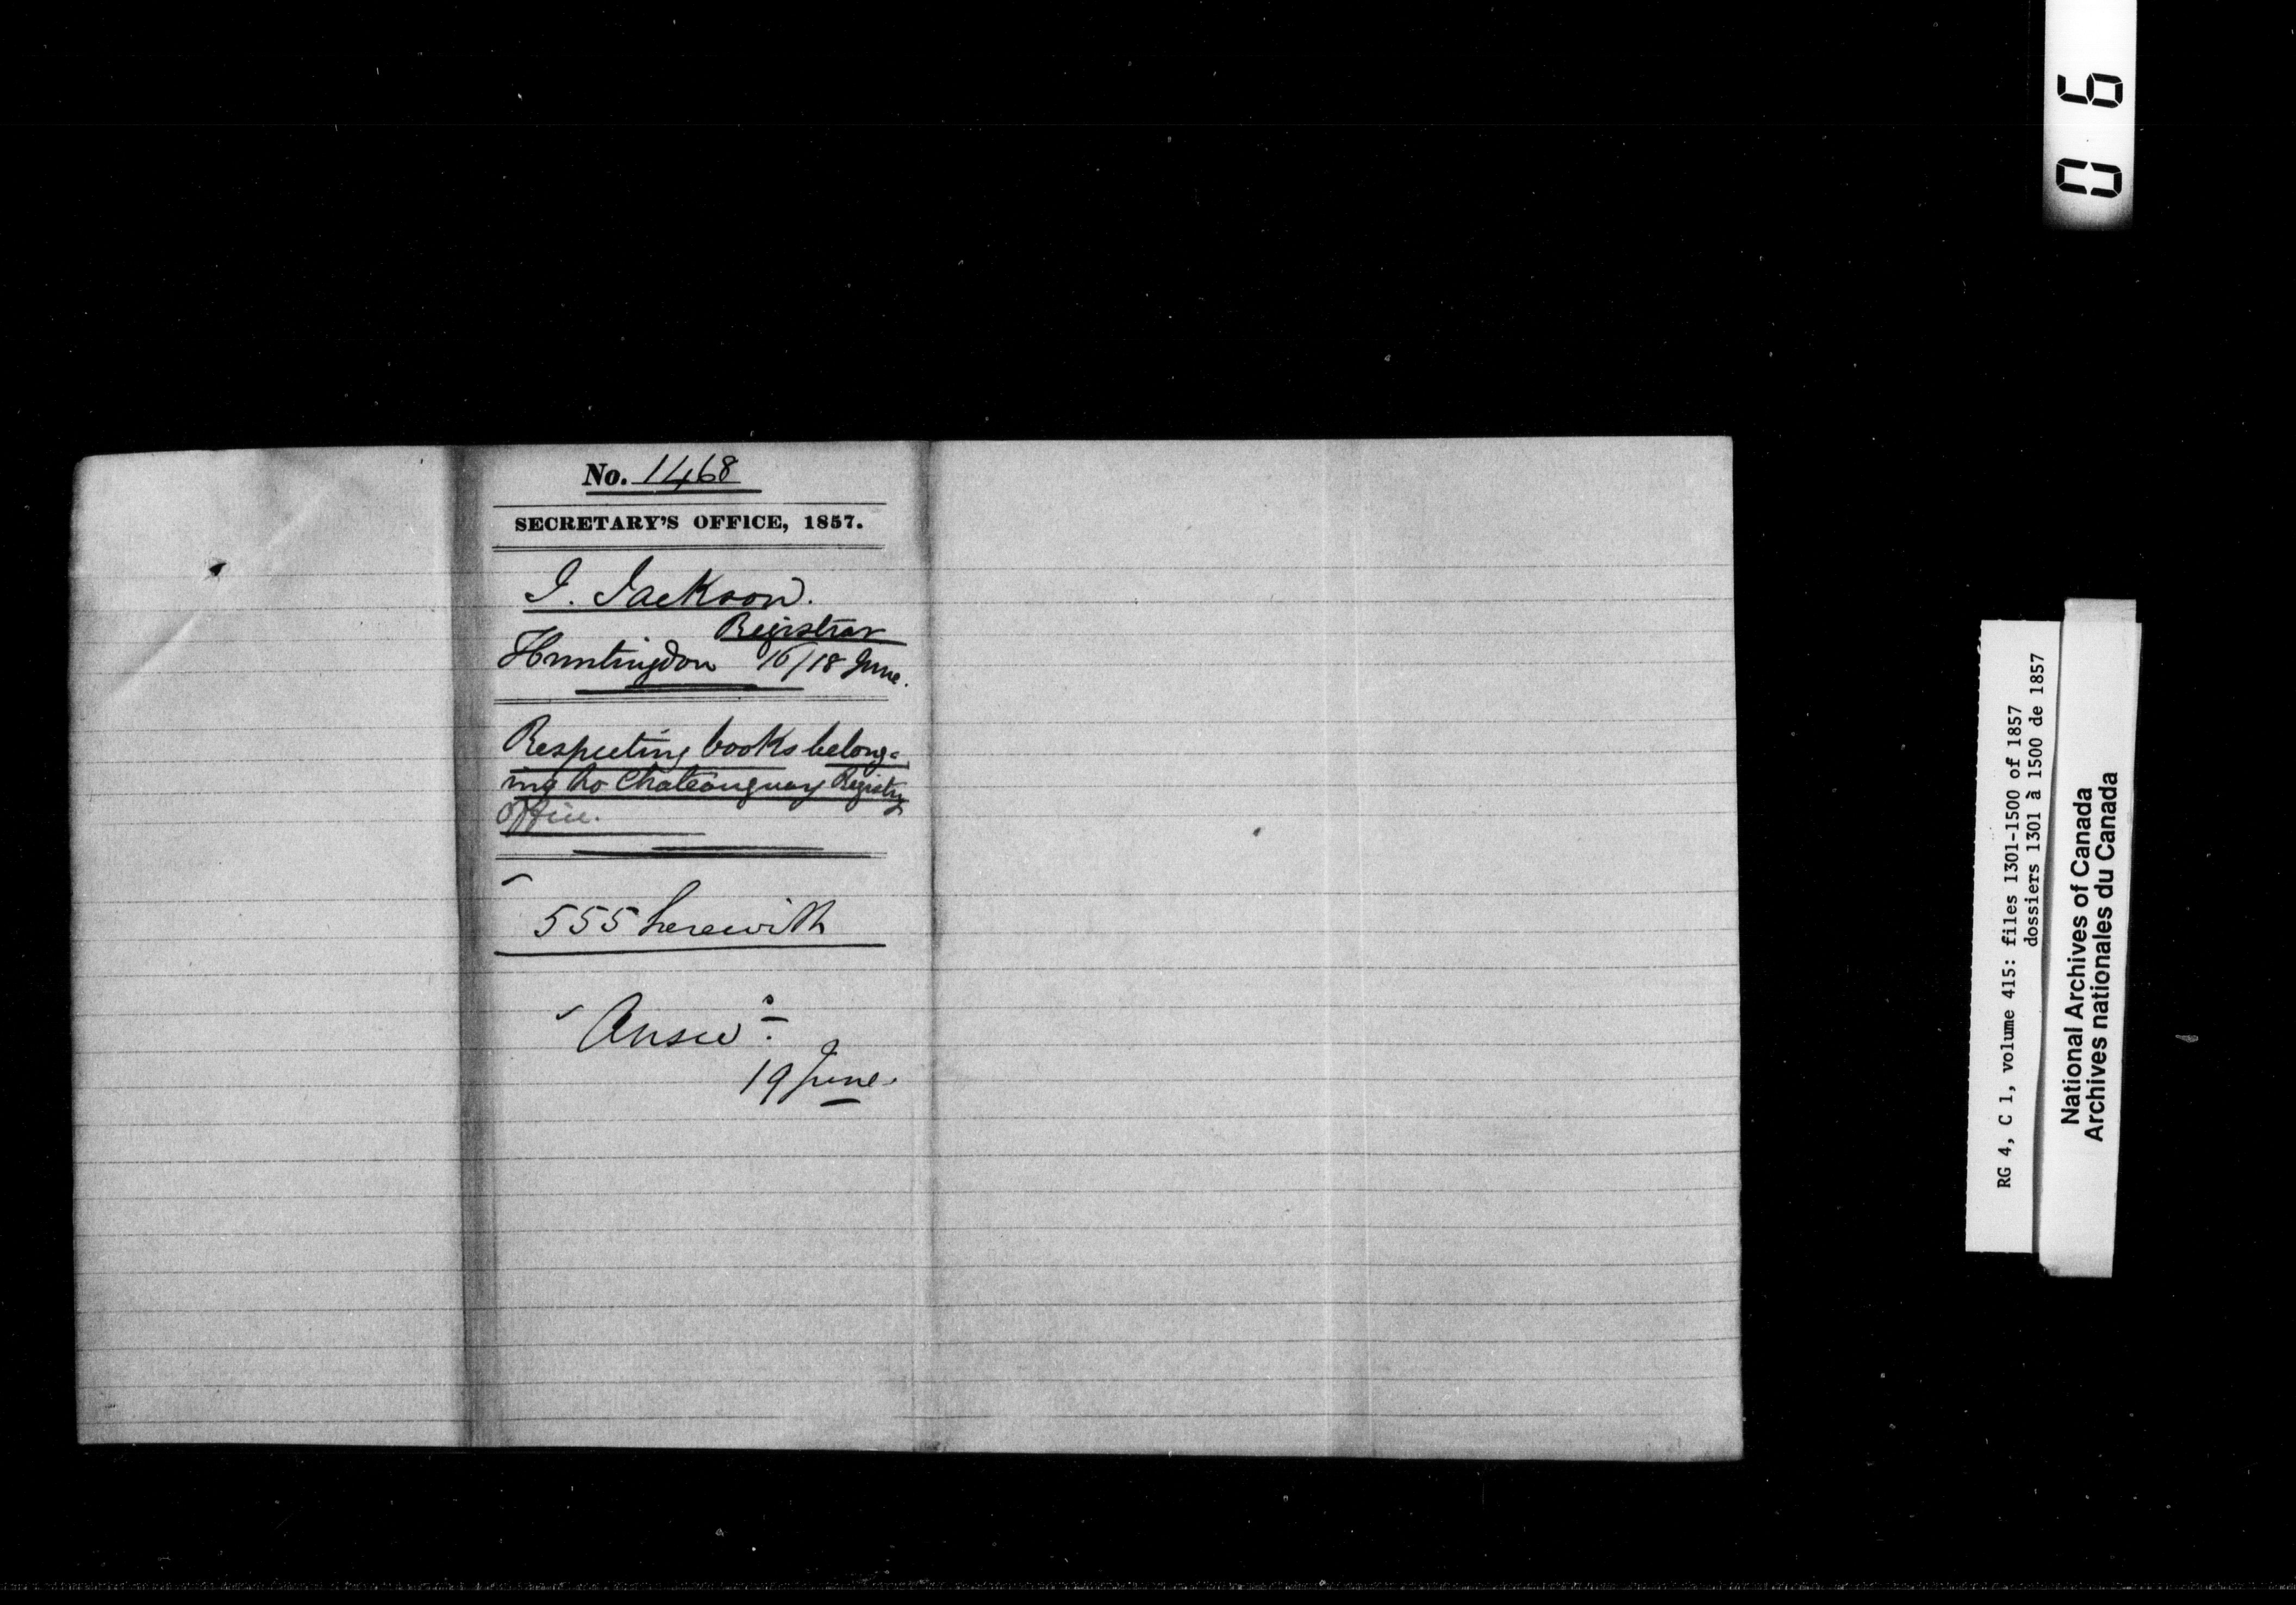 No. 1468
SECRETARY'S OFFICE, 1857.
J. Jackson.
Registrar
Huntingdon 16/18 June.
Respecting books belong=
ing to Chateauguay Registry
Office.
555 herewith
Answ.
19 June.
06
RG 4, C 1, volume 415: files 1301-1500 of 1857
dossiers 1301 à 1500 de 1857
National Archives of Canada
Archives nationales du Canada